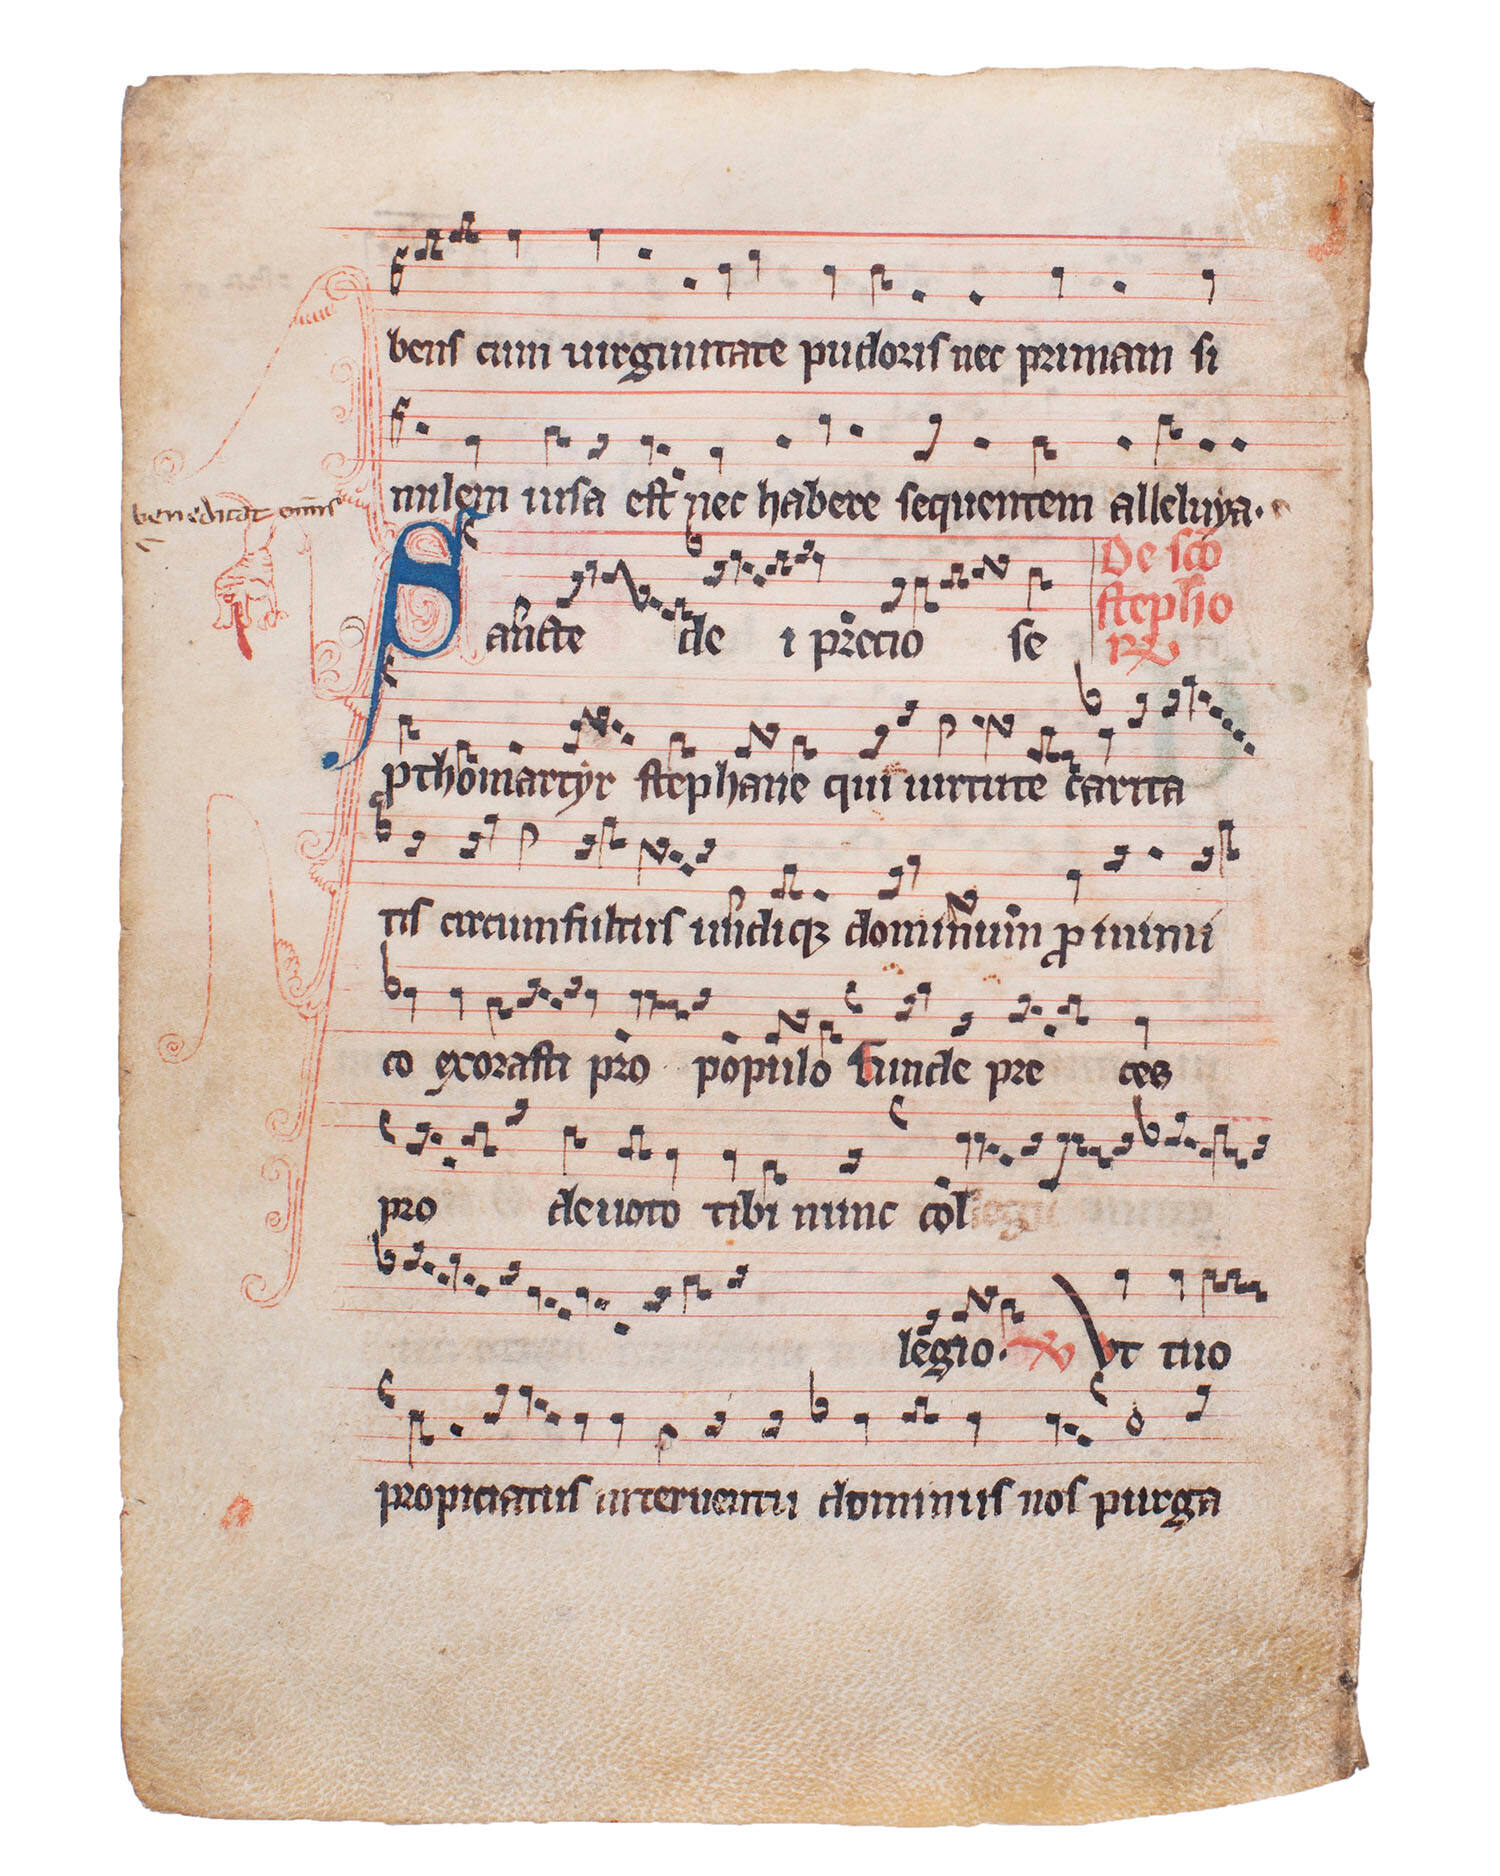 bens cum uirginitate pudoris nec primam si
milem uisa est nec habere sequentem alleluya.
benedicat omnis
De sco
Sancte de i precio se
stepho
prothomartyr stephane qui uirtute carita
tis circumfultus undiqz dominum pro inimi
co exorasti pro populo funde pre ces
pro deuoto tibi nunc col
legio. Vt tuo
propiciatus interuentu dominus nos purga